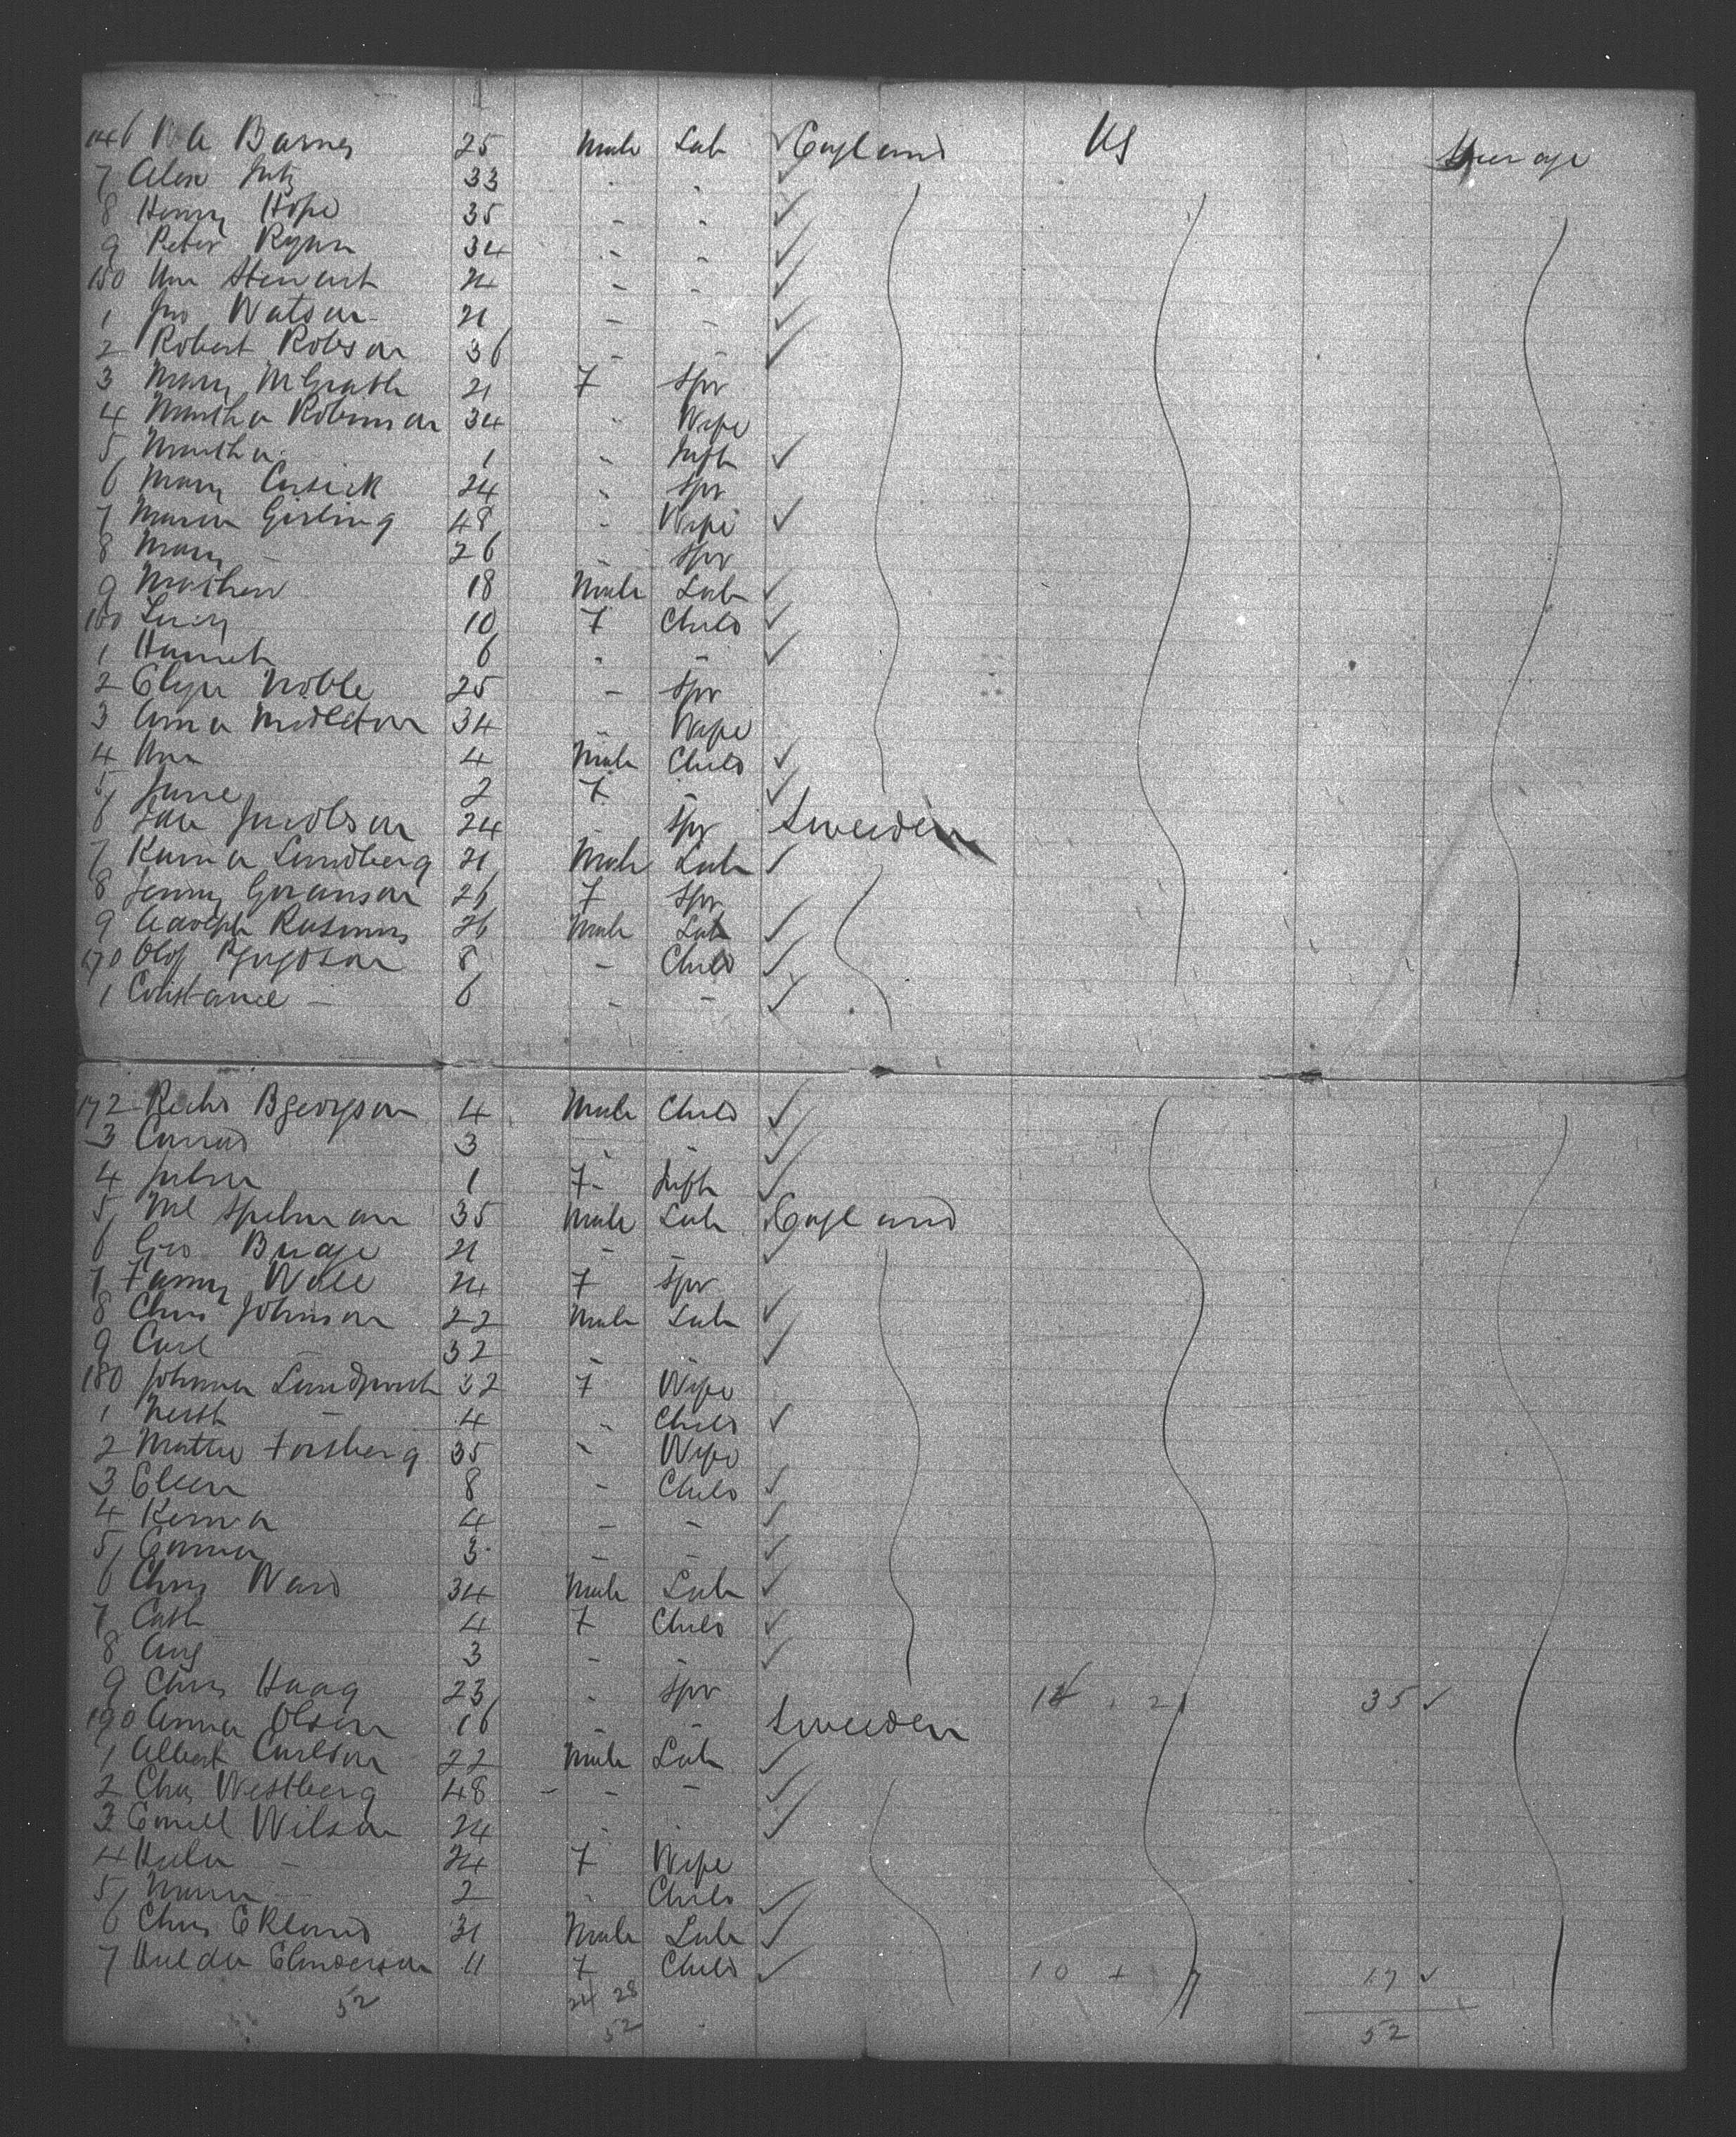 146 Barnes 25 Male Lab England US Steerage
7 Alex 33 " "
8 Henry Hope 35 - -
9 Peter Ryan 34 - -
150 Wm Stewart 24 - -
1 Jno Watson 21 - -
2 Robert Robson 36 - -
3 Mary McGrath 21 F Spr
4 Martha Robinson 34 " Wife
5 Martha 1 " Inft
6 Mary Cusick 24 " Spr
7 Maria Girling 48 - Wife
8 Mary - 26 - Spr
9 Mathew 18 Male Lab
160 Lucy 10 F Child
1 Harriet 6 " -
2 Noble 25 - Spr
3 Anna Middleton 34 - Wife
4 Wm 4 Male Child
5 Jane 2 F -
6 24 - Spr Sweden
7 Lundberg 21 Male Lab
8 Jenny Goranson 26 F Spr
9 Adolph Rasmus 26 Male Lab
170 Olof 8 - Child
1 Constance - 6 - -
172 4 Male Child
3 Conrad 3 - -
4 1 F Inft
5 Spelman 35 Male Lab England
6 Geo 21 - -
7 Fanny Wall 24 F Spr
8 Chas Johnson 22 Male Lab
9 Carl - 32 - -
180 Johanna 32 F Wife
1 - 4 " Child
2 Forsberg 35 " Wife
3 Ellen 8 - Child
4 4 - -
5 Emma 3 - -
6 Chas Ward 34 Male Lab
7 Cath 4 F Child
8 Aug 3 - -
9 Haag 23 - Spr 35
190 Anna Olson 16 - - Sweden
1 Albert Carlson 22 Male Lab
2 Chas Westberg 48 - - -
3 Wilson 24 - -
4 - 24 F Wife
5 Maria - 2 - Child
6 Chas Eklund 31 Male Lab
7 Hulda 11 F Child 10 + 7 17
52 24 28
52 52